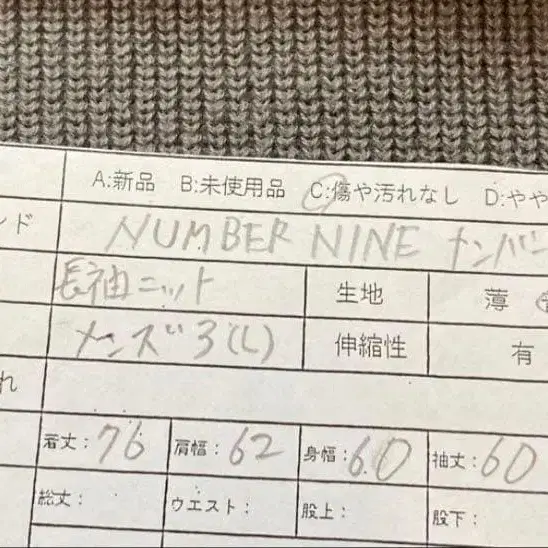 A:新品 B:未使用品 C:傷や汚れなし D:やや
ンド NUMBER NINE ナンバー
長袖ニット 生地 薄
メンズ 3(L) 伸縮性 有
れ
着丈:76 肩幅:62 身幅:60 袖丈:60
総丈: ウエスト: 股上: 股下: